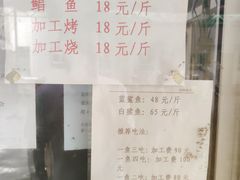 鲳 鱼 18 元/斤
加工烤 18 元/斤
加工烧 18 元/斤
蓝鲨鱼：48 元/斤
白鲸鱼：65 元/斤
推荐吃法：
一鱼三吃：加工费 90 元
一鱼四吃：加工费 100
元